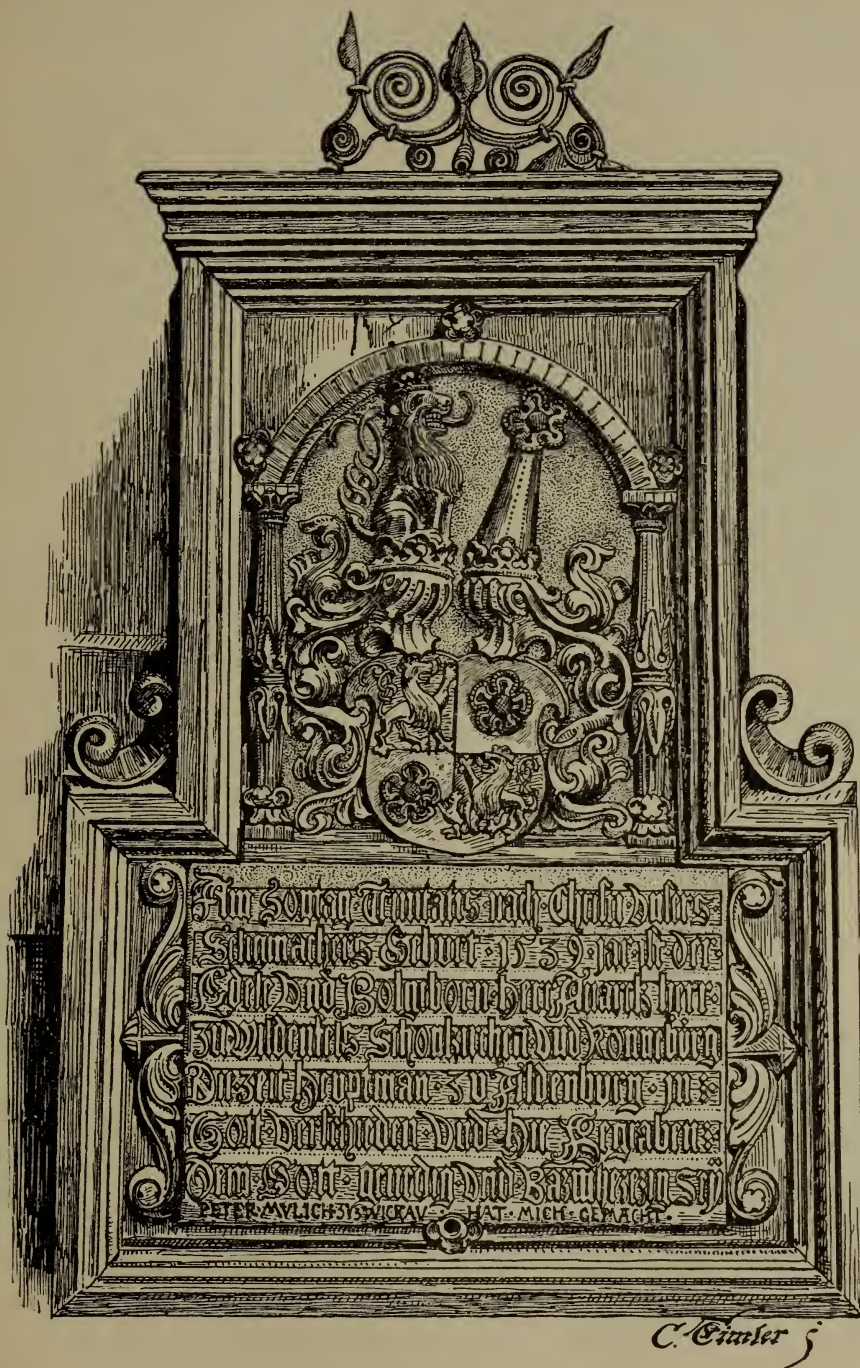 Am Sontag Trinitatis nach Christi Vnsers
Seligmachers Geburt · 1539 · jar ist der
Edele Vnd Wolgeborn herr Anarck herr
zu Wildenfels Schonkirchen Vnd Ronneburg
Diezeit Heuptman · zu Aldenburg · jn :
Gott Verschieden Vnd · hie Begraben :
Dem · Gott · genedig Vnd Barmhertzig Seÿ
PETER · MVLICH · ZV · ZWICKAV · HAT · MICH · GEMACHT ·
C. Timler